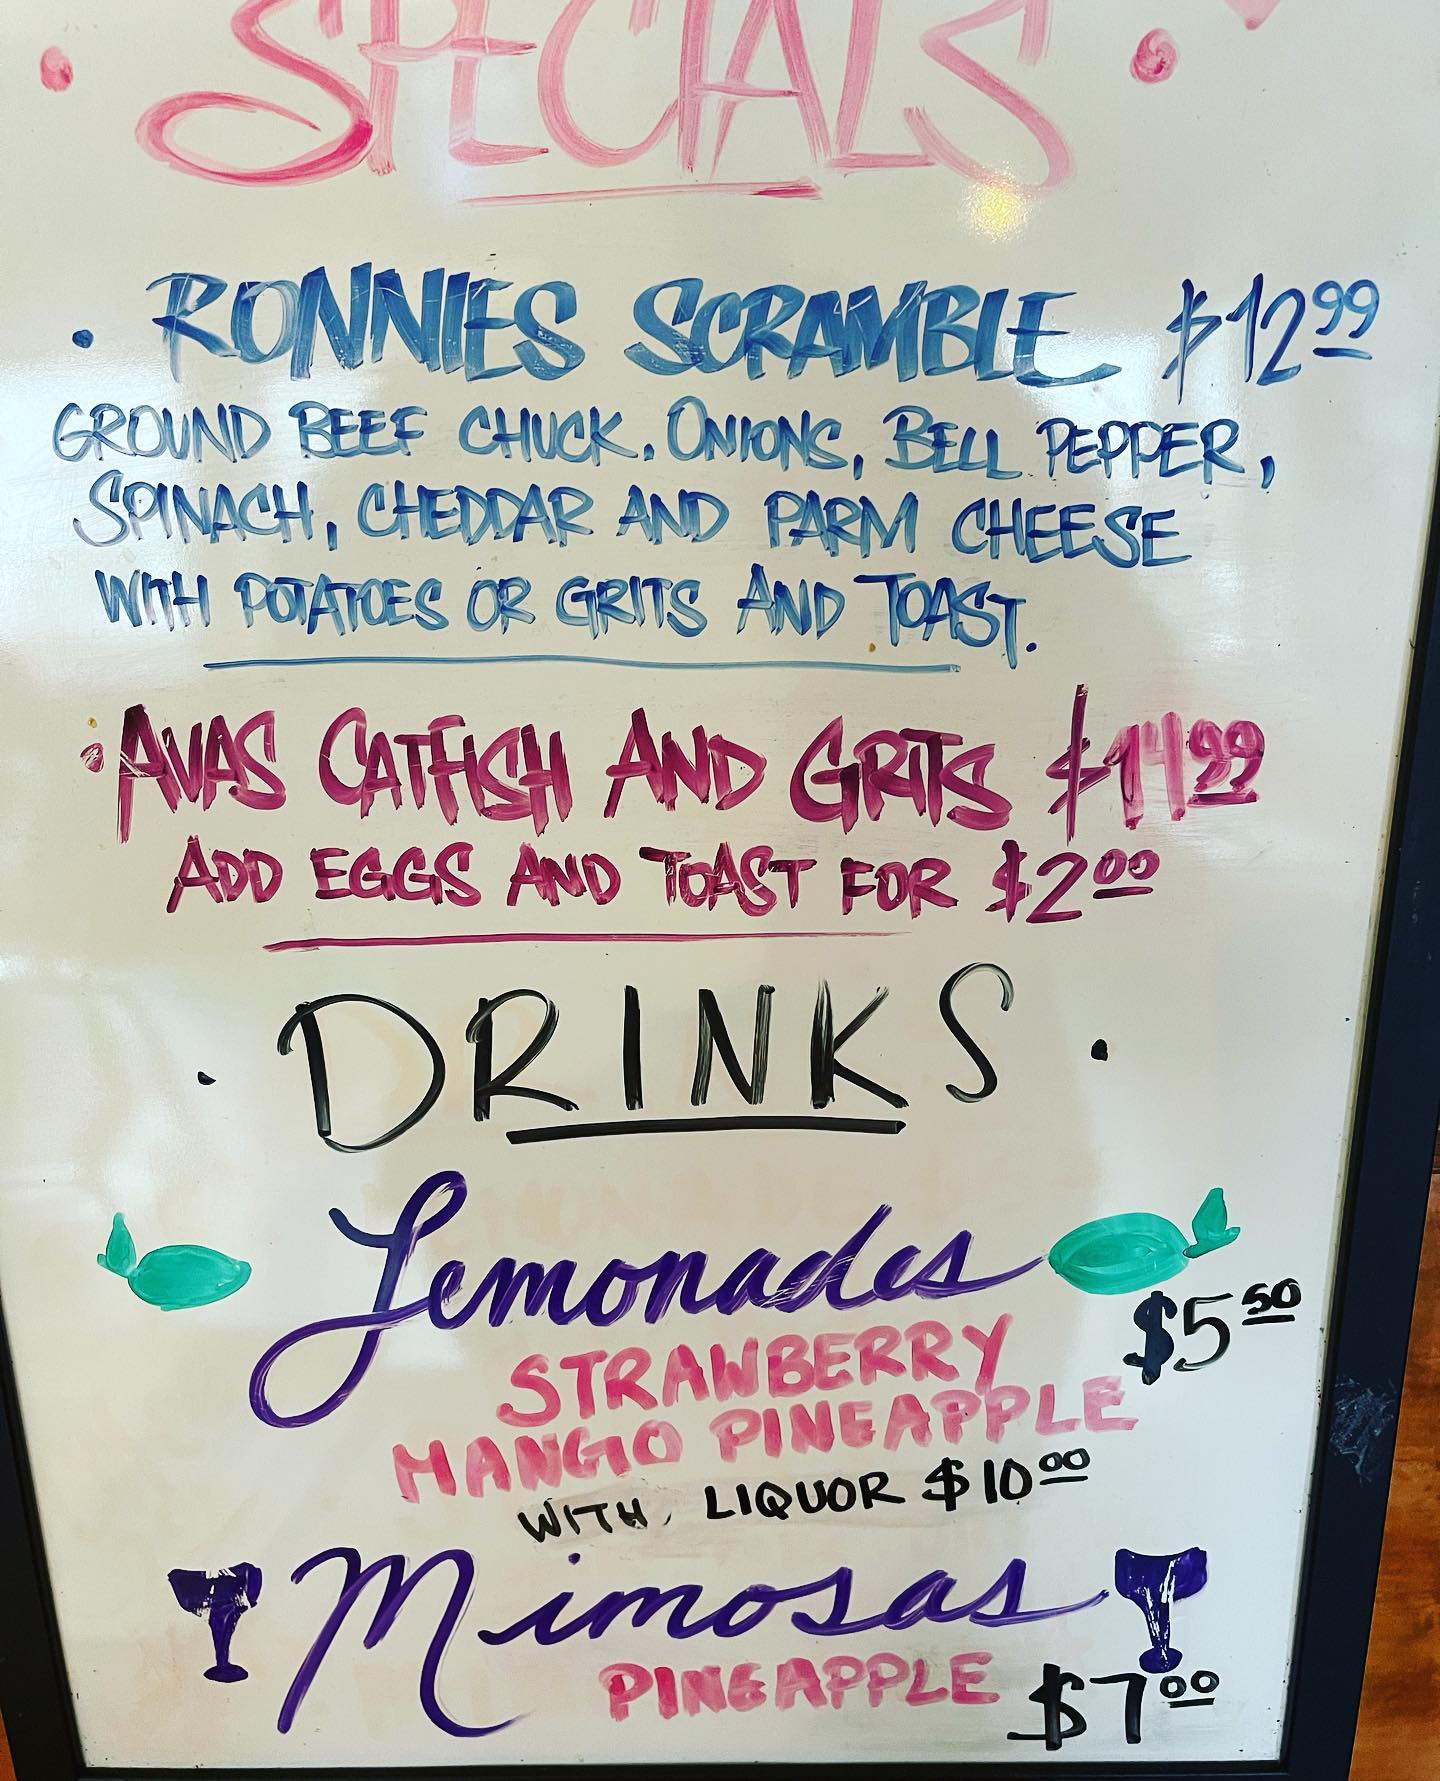 SPECIALS
• RONNIES SCRAMBLE $12.99
GROUND BEEF CHUCK. ONIONS, BELL PEPPER,
SPINACH, CHEDDAR AND PARM CHEESE
WITH POTATOES OR GRITS AND TOAST.
• AVAS CATFISH AND GRITS $14.99
ADD EGGS AND TOAST FOR $2.00
• DRINKS •
Lemonades
$5.50
STRAWBERRY
MANGO PINEAPPLE
WITH LIQUOR $10.00
Mimosas
PINEAPPLE $7.00